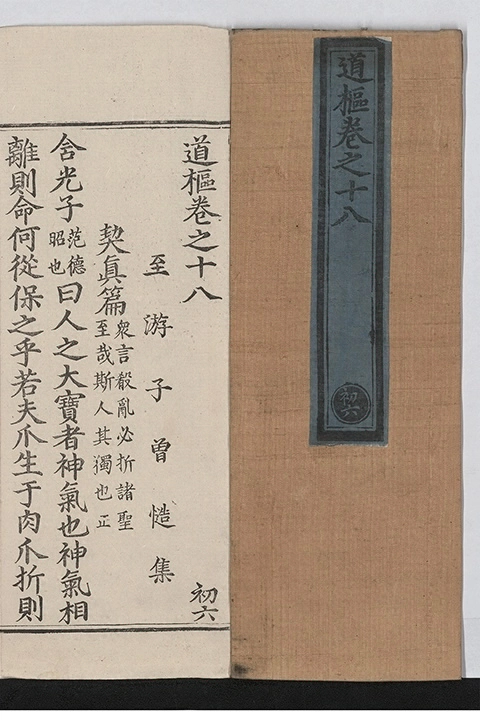 道樞卷之十八
初六
道樞卷之十八
初六
至游子曾慥集
契眞篇
衆言殽亂必折諸聖
至哉斯人其獨也正
含光子
范德
昭也
曰人之大寶者神氣也神氣相
離則命何從保之乎若夫爪生于肉爪折則